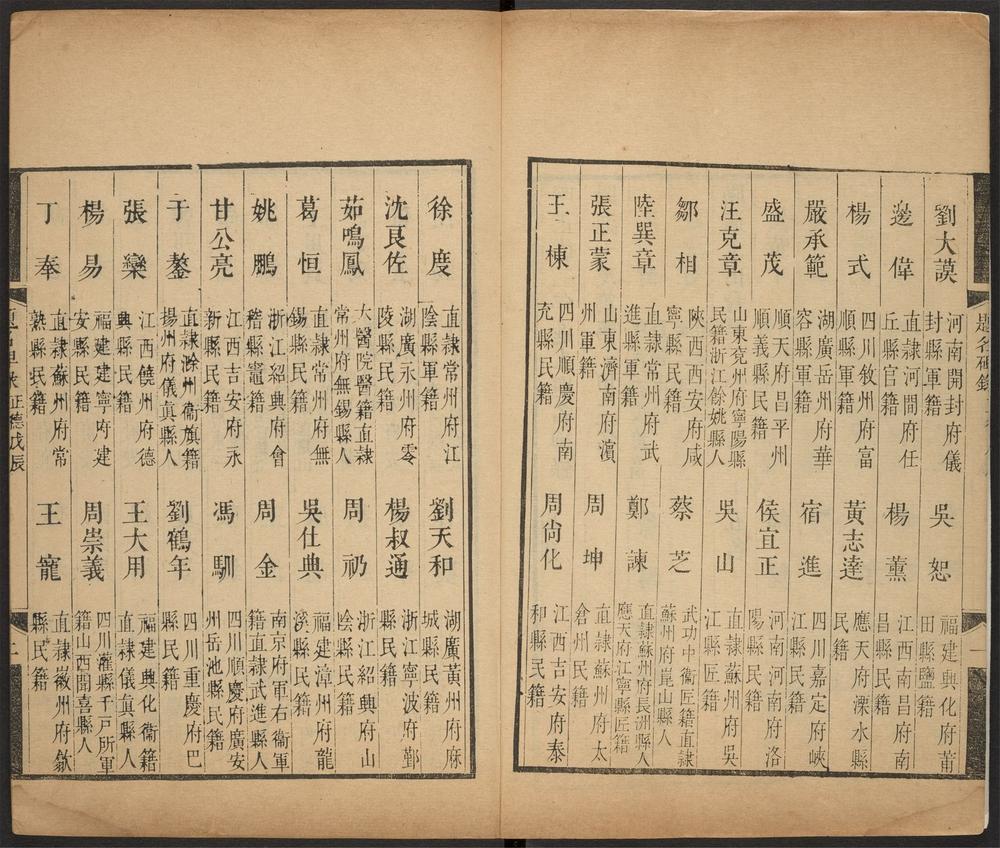 劉大謨 河南開封府儀封縣軍籍 吳恕 福建興化府莆田縣鹽籍
邊偉 直隸河間府任丘縣官籍 楊薰 江西南昌府南昌縣民籍
楊式 四川敘州府富順縣民籍 黃志達 應天府溧水縣民籍
嚴承範 湖廣岳州府華容縣軍籍 宿進 四川嘉定府峽江縣民籍
盛茂 順天府昌平州順義縣民籍 侯宜正 河南河南府洛陽縣民籍
汪克章 山東兗州府寧陽縣民籍浙江餘姚縣人 吳山 直隸蘇州府吳江縣匠籍
鄒相 陝西西安府咸寧縣民籍 蔡芝 武功中衞匠籍直隸蘇州府崑山縣人
陸巽章 直隸常州府武進縣軍籍 鄭諫 直隸蘇州府長洲縣人應天府江寧縣匠籍
張正蒙 山東濟南府濱州軍籍 周坤 直隸蘇州府太倉州民籍
王棟 四川順慶府南充縣民籍 周尙化 江西吉安府泰和縣民籍
徐度 直隸常州府江陰縣軍籍 劉天和 湖廣黃州府麻城縣民籍
沈良佐 湖廣永州府零陵縣民籍 楊叔通 浙江寧波府鄞縣民籍
茹鳴鳳 大醫院醫籍直隸常州府無錫縣人 周礽 浙江紹興府山陰縣民籍
葛恒 直隸常州府無錫縣民籍 吳仕典 福建漳州府龍溪縣民籍
姚鵬 浙江紹興府會稽縣竈籍 周金 南京府軍右衞軍籍直隸武進縣人
甘公亮 江西吉安府永新縣民籍 馮馴 四川順慶府廣安州岳池縣民籍
于鏊 直隸滁州衞旗籍揚州府儀眞縣人 劉鶴年 四川重慶府巴縣民籍
張欒 江西饒州府德興縣民籍 王大用 福建興化衞籍直隸儀眞縣人
楊易 福建建寧府建安縣民籍 周崇義 四川灌縣千戸所軍籍山西聞喜縣人
丁奉 直隸蘇州府常熟縣民籍 王寵 直隸徽州府歙縣民籍
正德戊辰